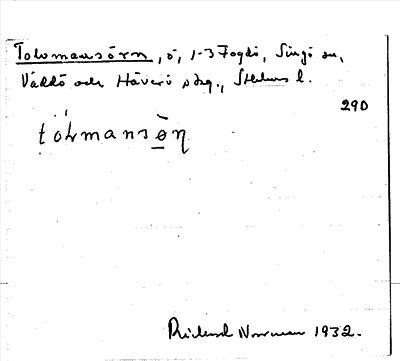 Tolvmansörn, ö, 1-3 Fogdö, Singö sn,
Väddö och Häverö slg., Sthlms l.
290
tólvmansø̀n
Rickard Norrman 1932.